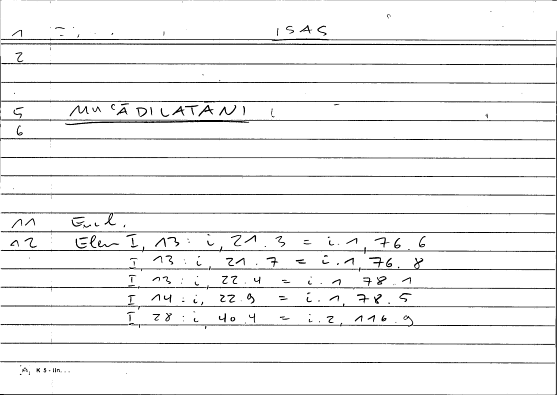 1 ISAS
2
5 MUʿĀDILATĀNI i
6
11 Eucl.
12 Elem I, 13 : i, 21.3 = i.1, 76.6
I, 13 : i, 21.7 = i.1, 76.8
I, 13 : i, 22.4 = i.1 78.1
I, 14 : i, 22.9 = i.1, 78.5
I, 28 : i, 40.4 = i.2, 116.9